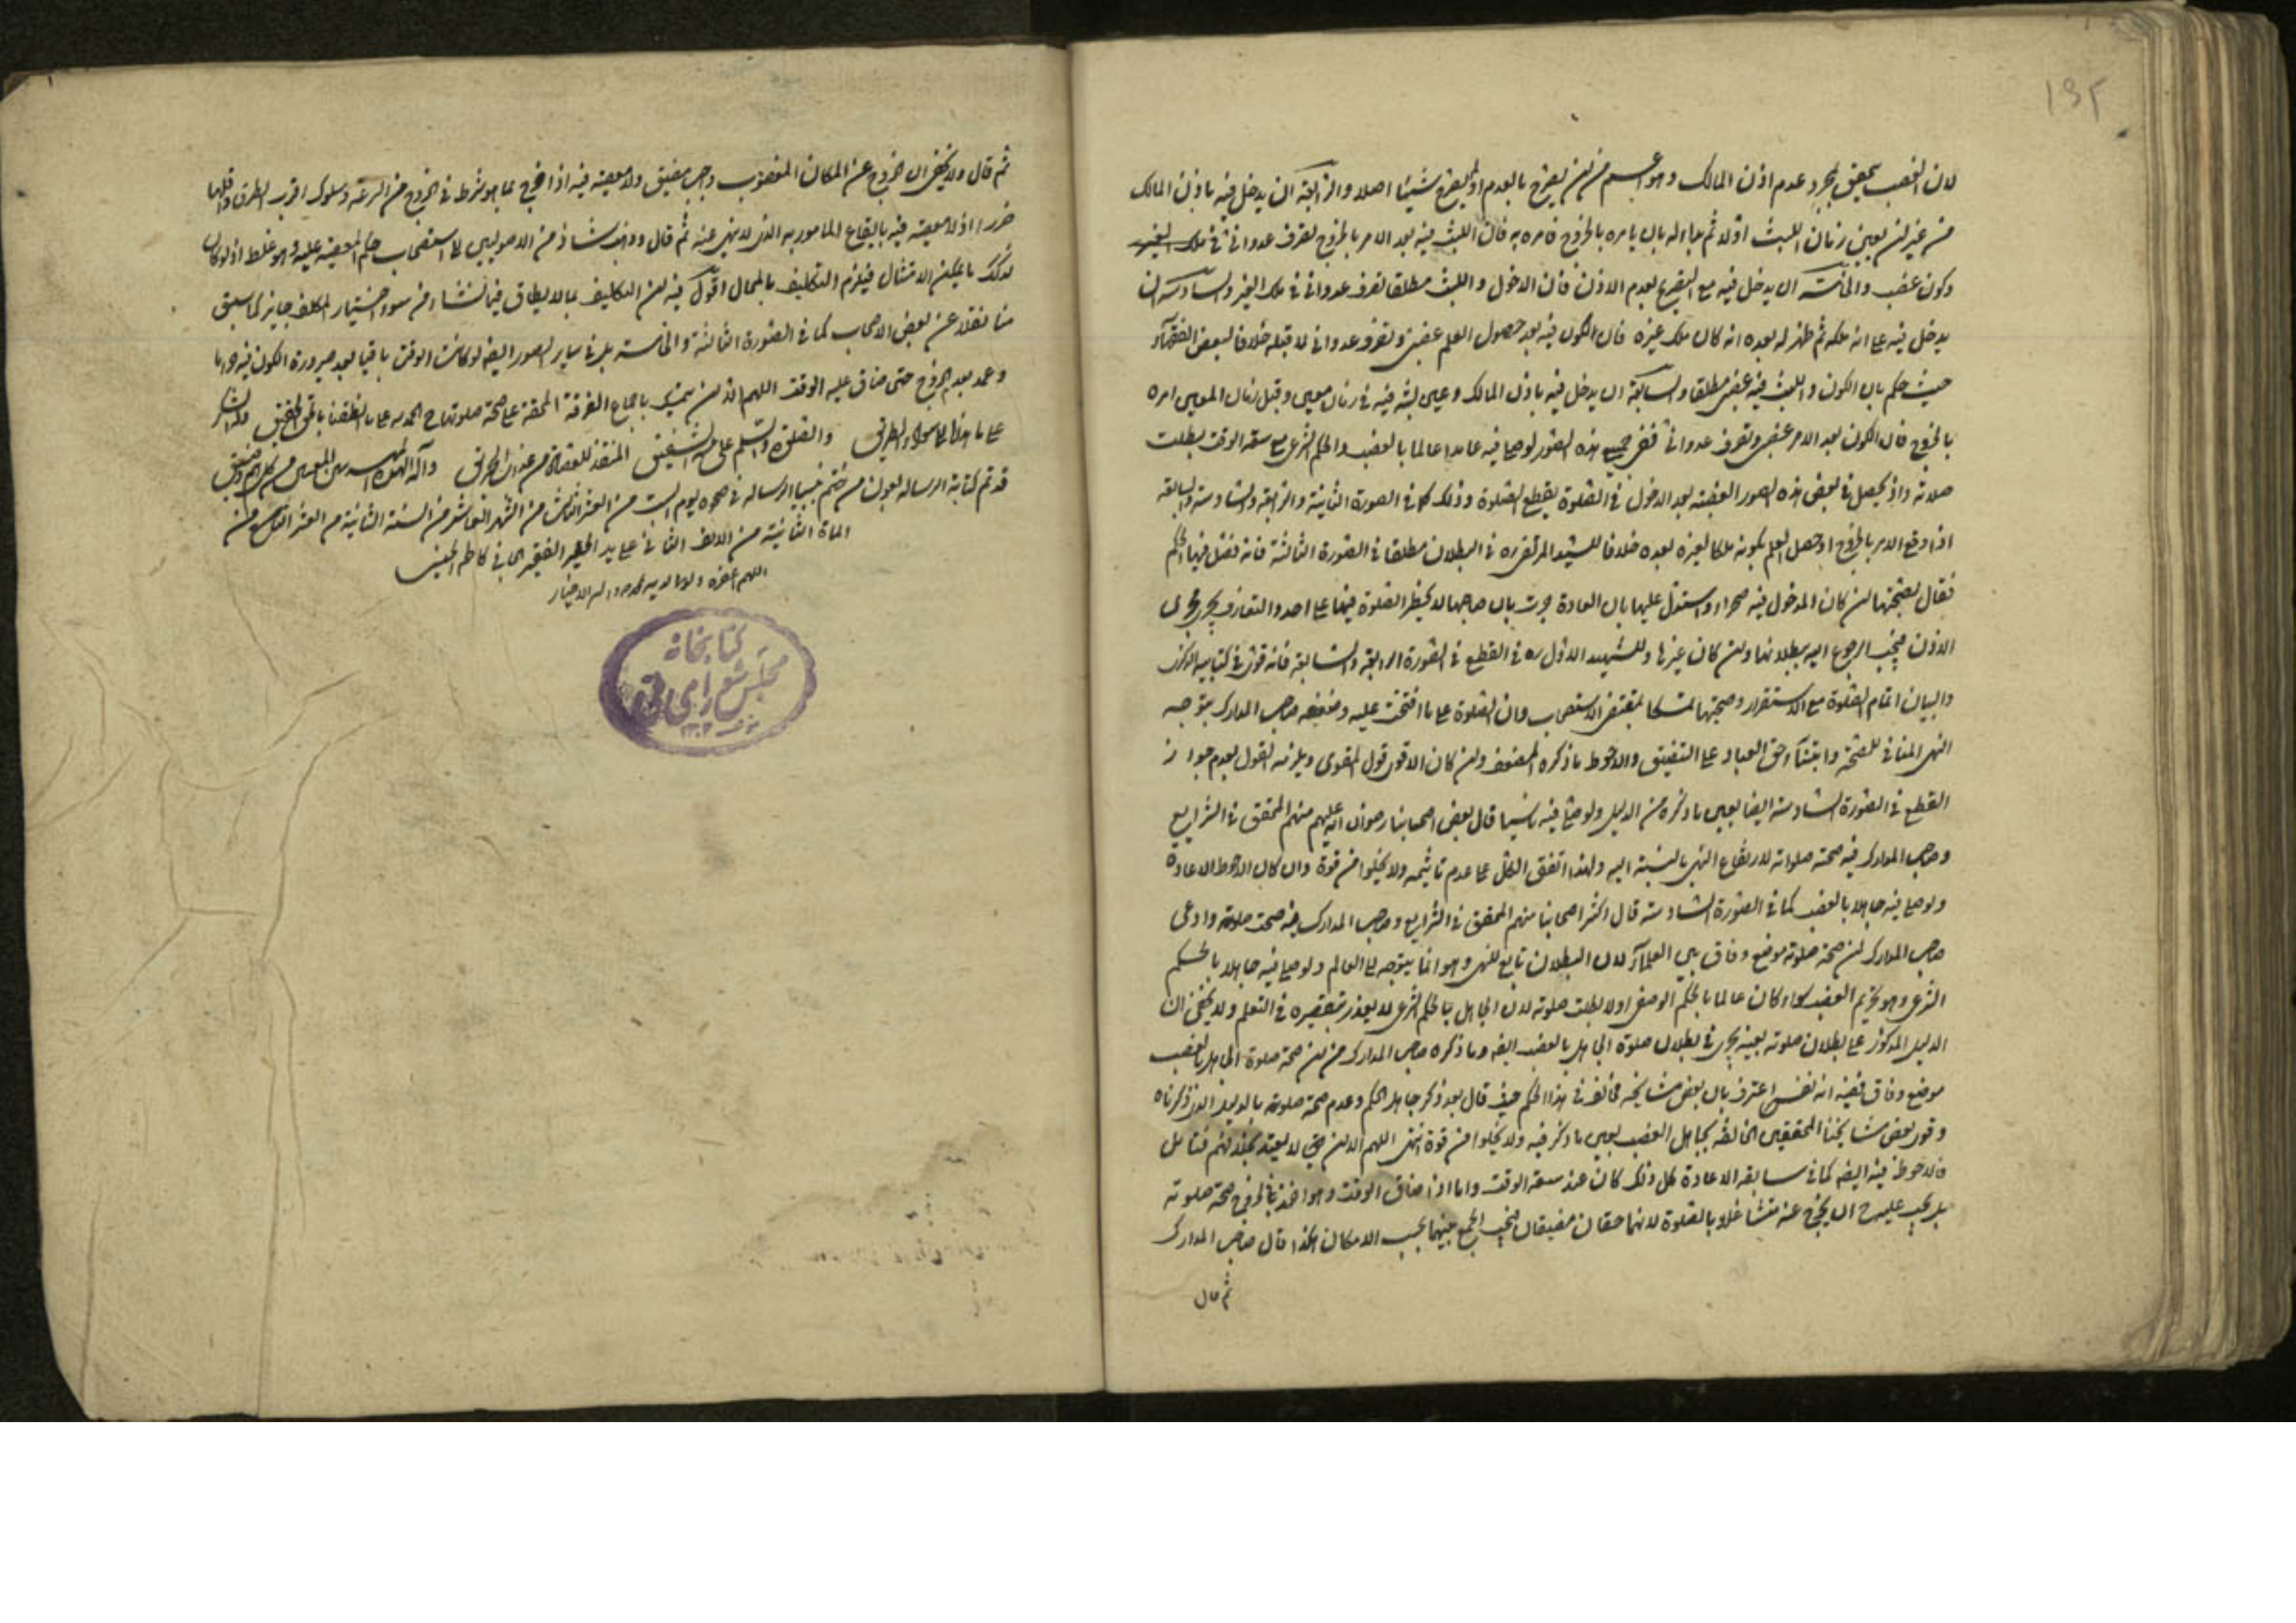 ١٩٢
لان الغصب يتحقق بمجرد عدم اذن المالك وهو اعم من ان يصرح بالعدم او لم يصرح شيئا اصلا والرابعة ان يدخل فيه باذن المالك
من غير ان يعين زمان اللبث اولا ثم بدا له بان يامره بالخروج فامره به فان اللبث فيه بعد الامر بالخروج تصرف عدوانى فى ملك الغير
وكون غصب والخامسة ان يدخل فيه مع التصريح بعدم الاذن فان الدخول و اللبث مطلقا تصرف عدوانى فى ملك الغير والسادسة ان
يدخل فيه على انه ملكه ثم ظهر له بعده انه كان ملك غيره فان الكون فيه بعد حصول العلم غصبى وتصرف عدوانى لا قبله خلافا لبعض الفقهآء
حيث حكم بان الكون و اللبث فيه غصبى مطلقا والسابعة ان يدخل فيه باذن المالك وعين لبثه فيه فى زمان معين وقبل زمان المعين امره
بالخروج فان الكون بعد الامر غصبى وتصرف عدوانى ففى جميع هذه الصور لو صلى فيه عامدا عالما بالغصب والحكم الشرعى مع سعة الوقت بطلت
صلاته واذ يحصل فى بعض هذه الصور الغصبية بعد الدخول فى الصلوة يقطع الصلوة وذلك كما فى الصورة الثانية والرابعة والسادسة والسابعة
اذا وقع الامر بالخروج او حصل العلم بكونه ملكا لغيره بعده خلافا للسيد المرتضى ره فى البطلان مطلقا فى الصورة الثالثة فانه فصل فيها الحكم
فقال بصحتها ان كان المدخول فيه صحراء واستدل عليها بان العادة جرت بان صاحبها لا يحظر الصلوة فيها على احد والتعارف يجرى مجرى
الاذن فيجب الرجوع اليه ببطلانها وان كان غيرها وللشهيد الاول ره فى القطع فى الصورة الرابعة والسابعة فانه قوى فى كتابيه الذكرى
والبيان اتمام الصلوة مع الاستقرار وصحتها تمسكا بمقتضى الاستصحاب وان الصلوة على ما افتتحت عليه وضعفه صاحب المدارك بتوجه
النهى المنافى للصحة وابتنآء حق العباد على التضييق والاحوط ما ذكره المصنف وان كان الاقوى قول المقوى ويلزمه القول بعدم جواز
القطع فى الصورة السادسة ايضا بعين ما ذكره من الدليل ولو صلى فيه ناسيا قال بعض اصحابنا رضوان الله عليهم منهم المحقق فى الشرايع
وصاحب المدارك فيه صحة صلواته لارتفاع النهى بالنسبة اليه ولهذا اتفق الكل على عدم تاثيمه ولا يخلوا من قوة وان كان الاحوط الاعادة
ولو صلى فيه جاهلا بالغصب كما فى الصورة السادسة قال اكثر اصحابنا منهم المحقق فى الشرايع وصاحب المدارك فيه صحت صلوته وادعى
صاحب المدارك ان صحة صلوته موضع وفاق بين العلمآء لان البطلان تابع للنهى وهو انما يتوجه الى العالم ولو صلى فيه جاهلا بالحكم
الشرعى وهو تحريم الغصب سواء كان عالما بالحكم الوضعى اولا بطلت صلوته لان الجاهل بالحكم الشرعى لا يعذر بتقصيره فى التعلم ولا يخفى ان
الدليل المذكور على بطلان صلوته بعينه يجرى فى بطلان صلوة الجاهل بالغصب ايضه وما ذكره صاحب المدارك من ان صحة صلوة الجاهل بالغصب
موضع وفاق ففيه انه نفسه اعترف بان بعض مشايخه مخالف فى هذا الحكم حيث قال بعد ذكر جاهل الحكم وعدم صحة صلوته بالدليل الذى ذكرناه
وقوى بعض مشايخنا المحققين الحاقه بجاهل الغصب بعين ما ذكر فيه ولا يخلوا من قوة انتهى اللهم الا ان حق لا يعتد بخلافهم فتامل
فالاحوط فيه ايضه كما فى سابقه الاعادة كل ذلك كان عند سعة الوقت واما اذا ضاق الوقت وهو اخذ فى الخروج صحة صلوته
بل يجب عليه ح ان يخرج عنه متشاغلا بالصلوة لانهما حقان مضيقان فيجب الجمع بينهما بحسب الامكان هكذا قال صاحب المدارك
ثم قال
ثم قال ولا يخفى ان الخروج عن المكان المغصوب واجب مضيق ولا معصية فيه اذا خرج بما هو شرط فى الخروج من السرعة وسلوك اقرب الطرق واقلها
ضررا اذ لا معصية فيه بايقاع المامور به الذى لا نهى عنه ثم قال وذهب شاذ من الاصوليين الى استصحاب حكم المعصية عليه وهو غلط اذ لو كان
كذلك لم يمكن الامتثال فيلزم التكليف بالمحال اقول فيه ان التكليف بما لا يطاق فيما نشاء من سوء اختيار المكلف جايز كما سبق
منا نقله عن بعض الاصحاب كما فى الصورة الثالثة والخامسة بل فى ساير الصور ايضه لو كانت الوقت باقيا بعد صيرورة الكون فيه حراما
وعمد بعدم الخروج حتى ضاق عليه الوقت اللهم الا ان يتمسك باجماع الفرقة المحقة على صحة صلوتها ح الحمد لله على ما انطقنا بالحق الحقيق والشكر
على ما هدانا الى سواء الطريق والصلوة والسلم على الشفيق المنقذ للعصاة من عذاب الحريق وآله
قد تم كتابة الرسالة بعون من ختم بنبيه الرسالة فى صحوة يوم السبت من العشر الثالث من الشهر العاشر من السنة الثانية من العشر التاسع من
الماة الثانية من الالف الثانى على يد الحقير الفقير الجانى كاظم الحسينى
اللهم اغفره ولوالديه بمحمد وآله الاخيار
كتابخانه
مجلس شوراى ملى